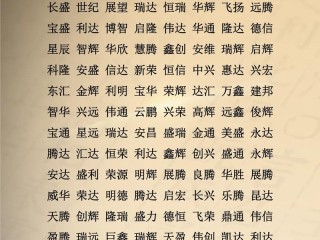 长盛 世纪 展望 瑞达 恒瑞 华辉 飞扬 远腾
宝盛 利达 博智 启隆 伟达 华通 隆达 德信
星辰 智辉 华欣 慧腾 鑫创 安维 瑞辉 启辉
科隆 安盛 信达 新荣 恒信 中兴 惠达 兴宏
东汇 金辉 利明 宝华 荣辉 达汇 万鑫 建邦
智华 兴元 伟福 云鹏 兴荣 高辉 远鑫 俊辉
宝通 星远 瑞达 安昌 盛瑞 金通 美盛 永达
腾达 汇达 恒荣 利达 鑫辉 创兴 盛通 永辉
安达 盛利 荣源 明辉 展腾 良腾 华胜 展腾
威华 荣达 明德 腾达 启宏 长兴 乐腾 昆达
天腾 创辉 隆瑞 盛力 德恒 飞荣 鼎通 伟信
盈腾 瑞远 巨鑫 瑞辉 天盈 伟创 兴达 创信